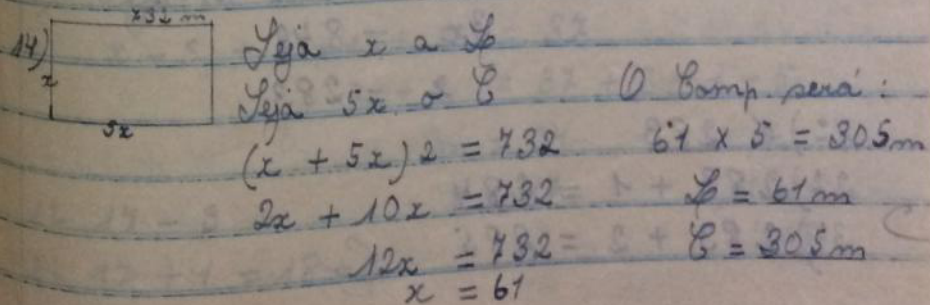 732 m
14)
x
5x
Seja x a L
Seja 5x o C
(x + 5x) 2 = 732
2x + 10x = 732
12x = 732
x = 61
O Comp. será:
61 x 5 = 305m
L = 61m
C = 305m